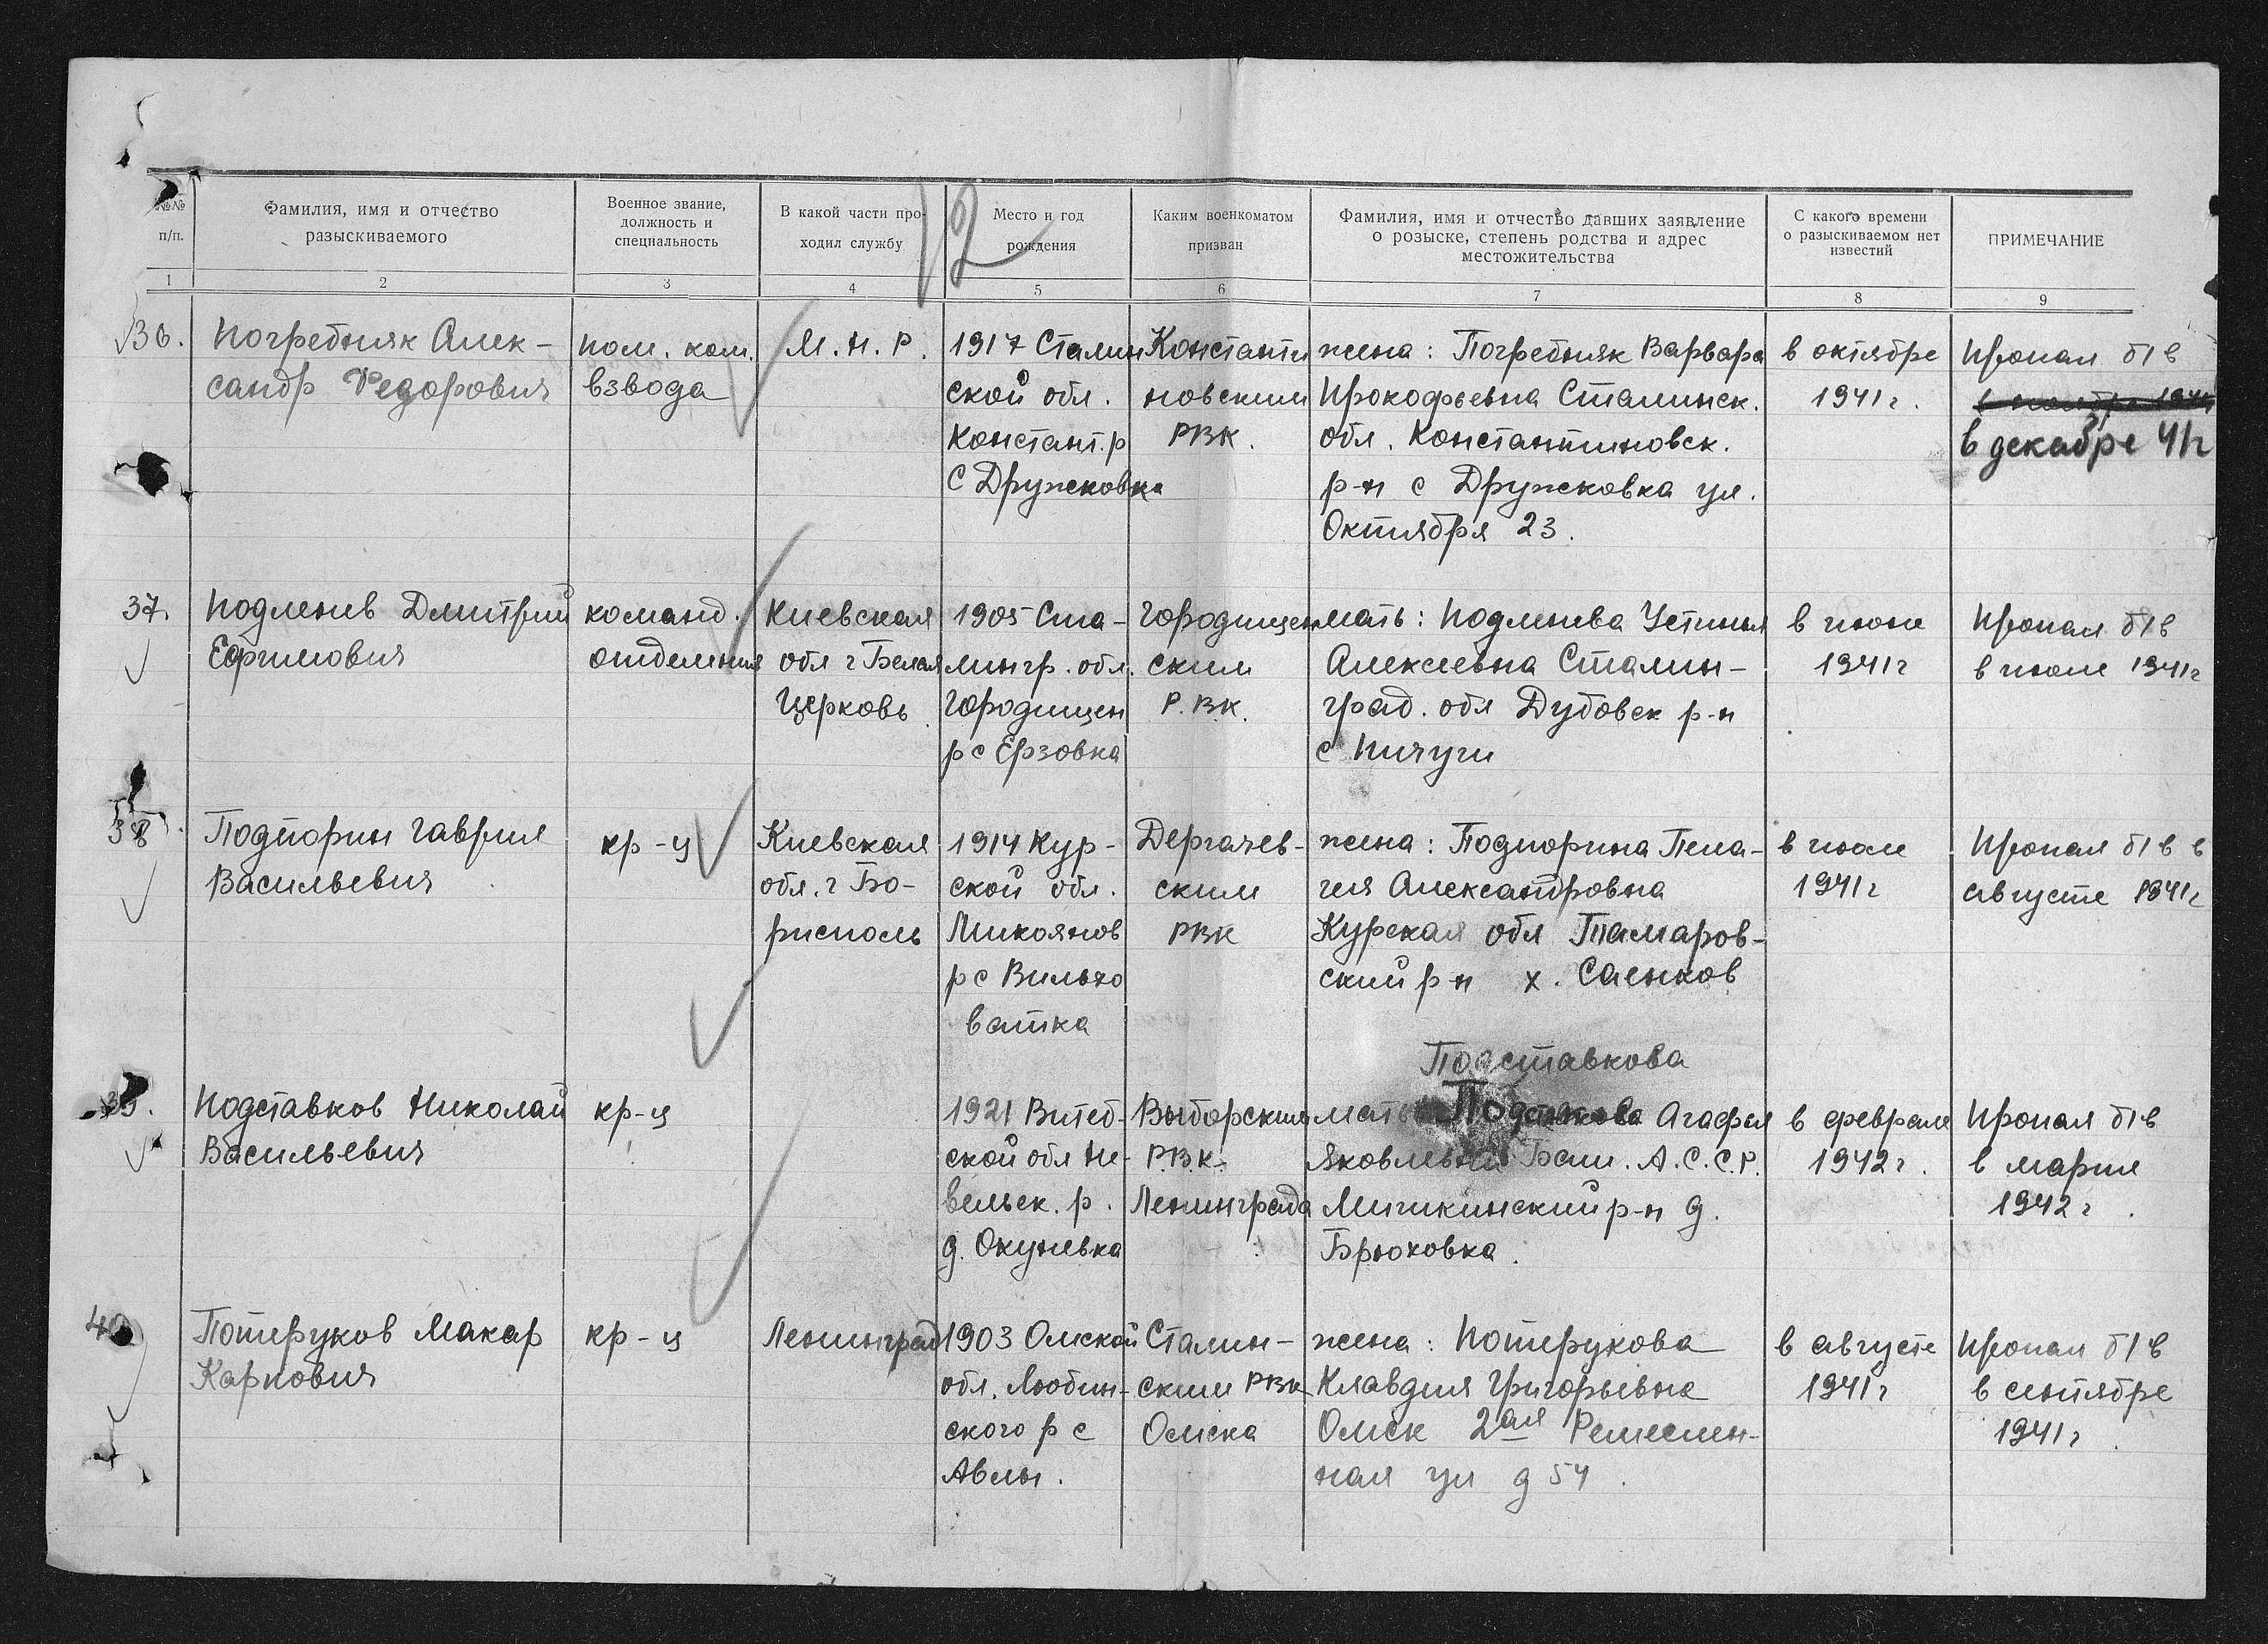 12
№№ п/п.
Фамилия, имя и отчество
разыскиваемого
Военное звание,
должность и
специальность
В какой части про-
ходил службу
Место и год
рождения
Каким военкоматом
призван
Фамилия, имя и отчество давших заявление
о розыске, степень родства и адрес
местожительства
С какого времени
о разыскиваемом нет
известий
ПРИМЕЧАНИЕ
1 2 3 4 5 6 7 8 9
36.
Погребняк Алек-
сандр Федорович
пом. ком.
взвода
М. Н. Р.
1917 Сталин
ской обл.
Констант. р
С Дружковка
Константи
новским
РВК.
жена: Погребняк Варвара
Прокофьевна Сталинск.
обл. Константиновск.
р-н с Дружковка ул.
Октября 23.
в октябре
1941г.
Пропал б/в
в декабре 41г
37.
Подленев Дмитрий
Ефимович
команд.
отделения
Киевская
обл г Белая
Церковь.
1905 Ста-
лингр. обл.
Городищен
р с Ерзовка
Городищен
ским
Р. В.К.
мать: Подленева Устинья
Алексеевна Сталин-
град. обл Дубовск р-н
с Пичуги
в июне
1941г
Пропал б/в
в июле 1941г
38.
Подпорин Гаврил
Васильевич
кр-ц
Киевская
обл. г Бо-
рисполь
1914 Кур-
ской обл.
Микоянов
р с Вильхо
ватка
Дергачев-
ским
РВК
жена: Подпорина Пела-
гея Александровна
Курская обл Тамаров-
ский р-н х. Саенков
в июле
1941г
Пропал б/в в
августе 1941г
39.
Подставков Николай
Васильевич
кр-ц
1921 Витеб-
ской обл Не-
вельск. р.
д. Окуневка
Выборским
РВК.
Ленинграда
Подставкова
мать Агафья
Яковлевна Баш. А. С. С. Р.
Мишкинский р-н д.
Брюховка.
в феврале
1942г.
Пропал б/в
в марте
1942г.
40
Потеруков Макар
Карпович
кр-ц
Ленинград
1903 Омской
обл. Любин-
ского р с
Авлы.
Сталин-
ским РВК
Омска
жена: Потерукова
Клавдия Григорьевна
Омск 2ая Ремеслен-
ная ул д 54.
в августе
1941г
Пропал б/в
в сентябре
1941г.